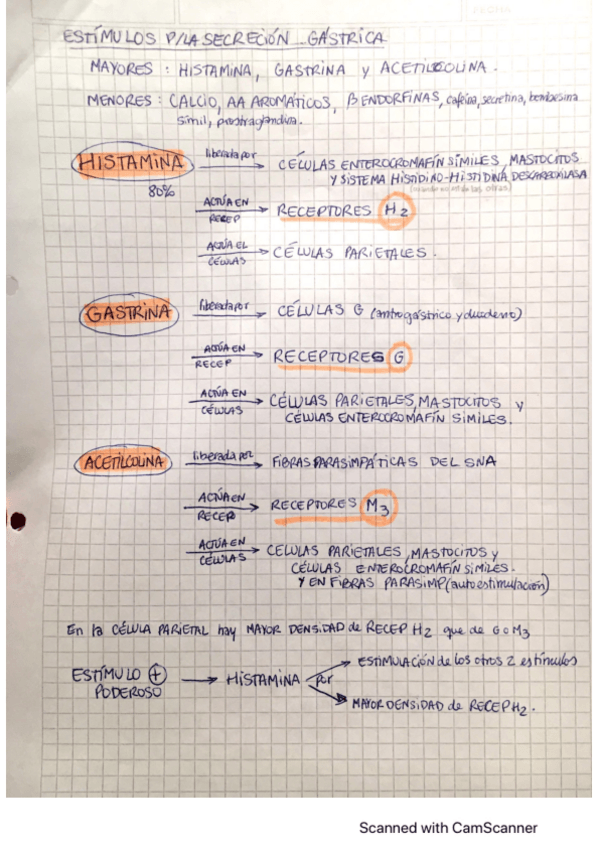 ESTÍMULOS P/LA SECRECIÓN GÁSTRICA
MAYORES: HISTAMINA, GASTRINA y ACETILCOLINA.
MENORES: CALCIO, AA AROMÁTICOS, β ENDORFINAS, cafeína, secretina, bombesina
simil, prostraglandina.
HISTAMINA liberada por CÉLULAS ENTEROCROMAFÍN SÍMILES, MASTOCITOS
80% Y SISTEMA HISTIDINO-HISTIDINA DESCARBOXILASA
ACTÚA EN RECEP RECEPTORES H2
ACTÚA EL CÉLULAS CÉLULAS PARIETALES.
GASTRINA liberada por CÉLULAS G (antro gástrico y duodeno)
ACTÚA EN RECEP RECEPTORES G
ACTÚA EN CÉLULAS CÉLULAS PARIETALES, MASTOCITOS y
CÉLULAS ENTEROCROMAFÍN SIMILES.
ACETILCOLINA liberada por FIBRAS PARASIMPÁTICAS DEL SNA
ACTÚA EN RECEP RECEPTORES M3
ACTÚA EN CÉLULAS CELULAS PARIETALES, MASTOCITOS y
CÉLULAS ENTEROCROMAFÍN SIMILES.
Y EN FIBRAS PARASIMP (autoestimulación)
En la CÉLULA PARIETAL hay MAYOR DENSIDAD de RECEP H2 que de G o M3
ESTIMULACIÓN de los otros 2 estímulos
ESTÍMULO + PODEROSO → HISTAMINA por
MAYOR DENSIDAD de RECEP H2.
Scanned with CamScanner